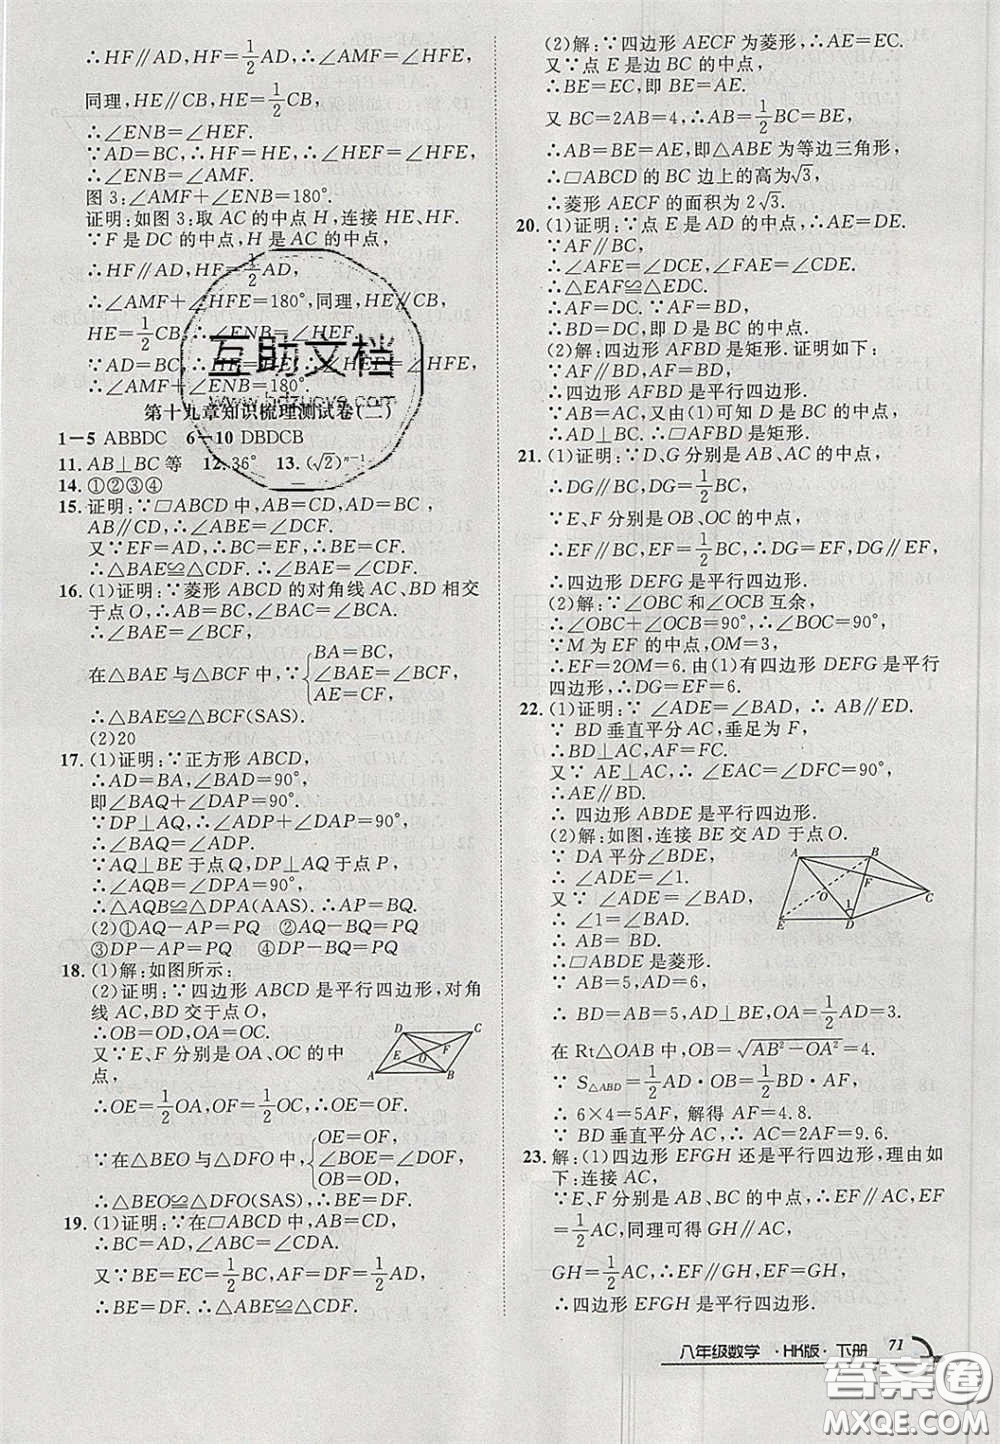 ∴HF∥AD,HF=1/2AD,∴∠AMF=∠HFE,
同理,HE∥CB,HE=1/2CB,
∴∠ENB=∠HEF.
∵AD=BC,∴HF=HE,∴∠HEF=∠HFE,
∴∠ENB=∠AMF.
图3:∠AMF+∠ENB=180°.
证明:如图3:取AC的中点H,连接HE、HF.
∵F是DC的中点,H是AC的中点,
∴HF∥AD,HF=1/2AD,
∴∠AMF+∠HFE=180°,同理,HE∥CB,
HE=1/2CB,∴∠ENB=∠HEF.
∵AD=BC,∴HF=HE,∴∠HEF=∠HFE,
∴∠AMF+∠ENB=180°.
第十九章知识梳理测试卷(二)
1-5 ABBDC 6-10 DBDCB
11.AB⊥BC等 12.36° 13.(√2)ⁿ⁻¹
14.①②③④
15.证明:∵▱ABCD中,AB=CD,AD=BC,
AB∥CD:∴∠ABE=∠DCF.
又∵EF=AD,∴EF=BC,∴BE=CF.
∴△ABE≌△DCF.
16.(1)证明:∵菱形ABCD的对角线AC、BD相交
于点O,∴AB=BC,∠BAC=∠BCA.
∴∠BAE=∠BCF,
在△BAE与△BCF中,∵{BA=BC,
∠BAE=∠BCF,
AE=CF,
∴△BAE≌△BCF(SAS).
(2)20
17.(1)证明:∵正方形ABCD,
∴AD=BA,∠BAD=90°,
即∠BAQ+∠DAP=90°.
∵DP⊥AQ,∴∠ADP+∠DAP=90°,
∴∠BAQ=∠ADP.
∵AQ⊥BE于点Q,DP⊥AQ于点P,
∴∠AQB=∠DPA=90°,
∴△AQB≌△DPA(AAS).∴AP=BQ.
(2)①AQ-AP=PQ ②AQ-BQ=PQ
③DP-AP=PQ ④DP-BQ=PQ
18.(1)解:如图所示:
(2)证明:∵四边形ABCD是平行四边形,对角
线AC,BD交于点O,
∴OB=OD,OA=OC.
又∵E、F分别是OA、OC的中
点,
∴OE=1/2OA,OF=1/2OC,
∴OE=OF.
∵在△BEO与△DFO中,{OE=OF,
∠BOE=∠DOF,
OB=OD,
∴△BEO≌△DFO(SAS).∴BE=DF.
D C E F O A B
19.(1)证明:∵在▱ABCD中,AB=CD,
∴BC=AD,∠ABC=∠CDA.
又∵BE=EC=1/2BC,AF=DF=1/2AD,
∴BE=DF.∴△ABE≌△CDF.
(2)解:∵四边形AECF为菱形,∴AE=EC.
又∵点E是边BC的中点,
∴BE=EC,即BE=AE.
又BC=2AB=4,∴AB=1/2BC=BE,
∴AB=BE=AE,即△ABE为等边三角形,
∴▱ABCD的BC边上的高为√3,
∴菱形AECF的面积为2√3.
20.(1)证明:∵点E是AD的中点,∴AE=DE.
∵AF∥BC,
∴∠AFE=∠DCE,∠FAE=∠CDE.
∴△EAF≌△EDC.
∴AF=DC.∵AF=BD,
∴BD=CD,∴D是BC的中点.
(2)解:四边形AFBD是矩形.证明如下:
∵AF∥BD,AF=BD,
∴四边形AFBD是平行四边形.
∵AB=AC,又由(1)可知D是BC的中点,
∴AD⊥BC,∴▱AFBD是矩形.
21.(1)证明:∵D、G分别是AB、AC的中点,
∴DG∥BC,DG=1/2BC,
∵E、F分别是OB、OC的中点,
∴EF∥BC,EF=1/2BC,∴DG=EF,DG∥EF,
∴四边形DEFG是平行四边形.
(2)解:∵∠OBC和∠OCB互余,
∴∠OBC+∠OCB=90°,∴∠BOC=90°.
∵M为EF的中点,OM=3,
∴EF=2OM=6.由(1)有四边形DEFG是平行
四边形,∴DG=EF=6.
22.(1)证明:∵∠ADE=∠BAD,∴AB∥ED.
∵BD垂直平分AC,垂足为F,
∴BD⊥AC,AF=FC.
又∵AE⊥AC,∴∠EAC=∠DFC=90°.
∴AE∥BD.
∴四边形ABDE是平行四边形.
(2)解:如图,连接BE交AD于点O.
∵DA平分∠BDE,
∴∠ADE=∠1.
又∵∠ADE=∠BAD,
∴∠1=∠BAD.
∴AB=BD.
∴▱ABDE是菱形.
∵AB=5,AD=6,
A B O F 1 C E D
∴BD=AB=5,AD⊥BE,OA=1/2AD=3.
在Rt△OAB中,OB=√(AB²-OA²)=4.
∵S△ABD=1/2AD·OB=1/2BD·AF,
∴6×4=5AF,解得AF=4.8.
∵BD垂直平分AC,∴AC=2AF=9.6.
23.解:(1)四边形EFGH还是平行四边形,理由如
下:连接AC,
∵E、F分别是AB、BC的中点,∴EF∥AC,EF
=1/2AC,同理可得GH∥AC,
GH=1/2AC,∴EF∥GH,EF=GH,
∴四边形EFGH是平行四边形.
八年级数学·HK版·下册 71
互助文档
www.hdzuoye.com
答案圈
MXQE.COM